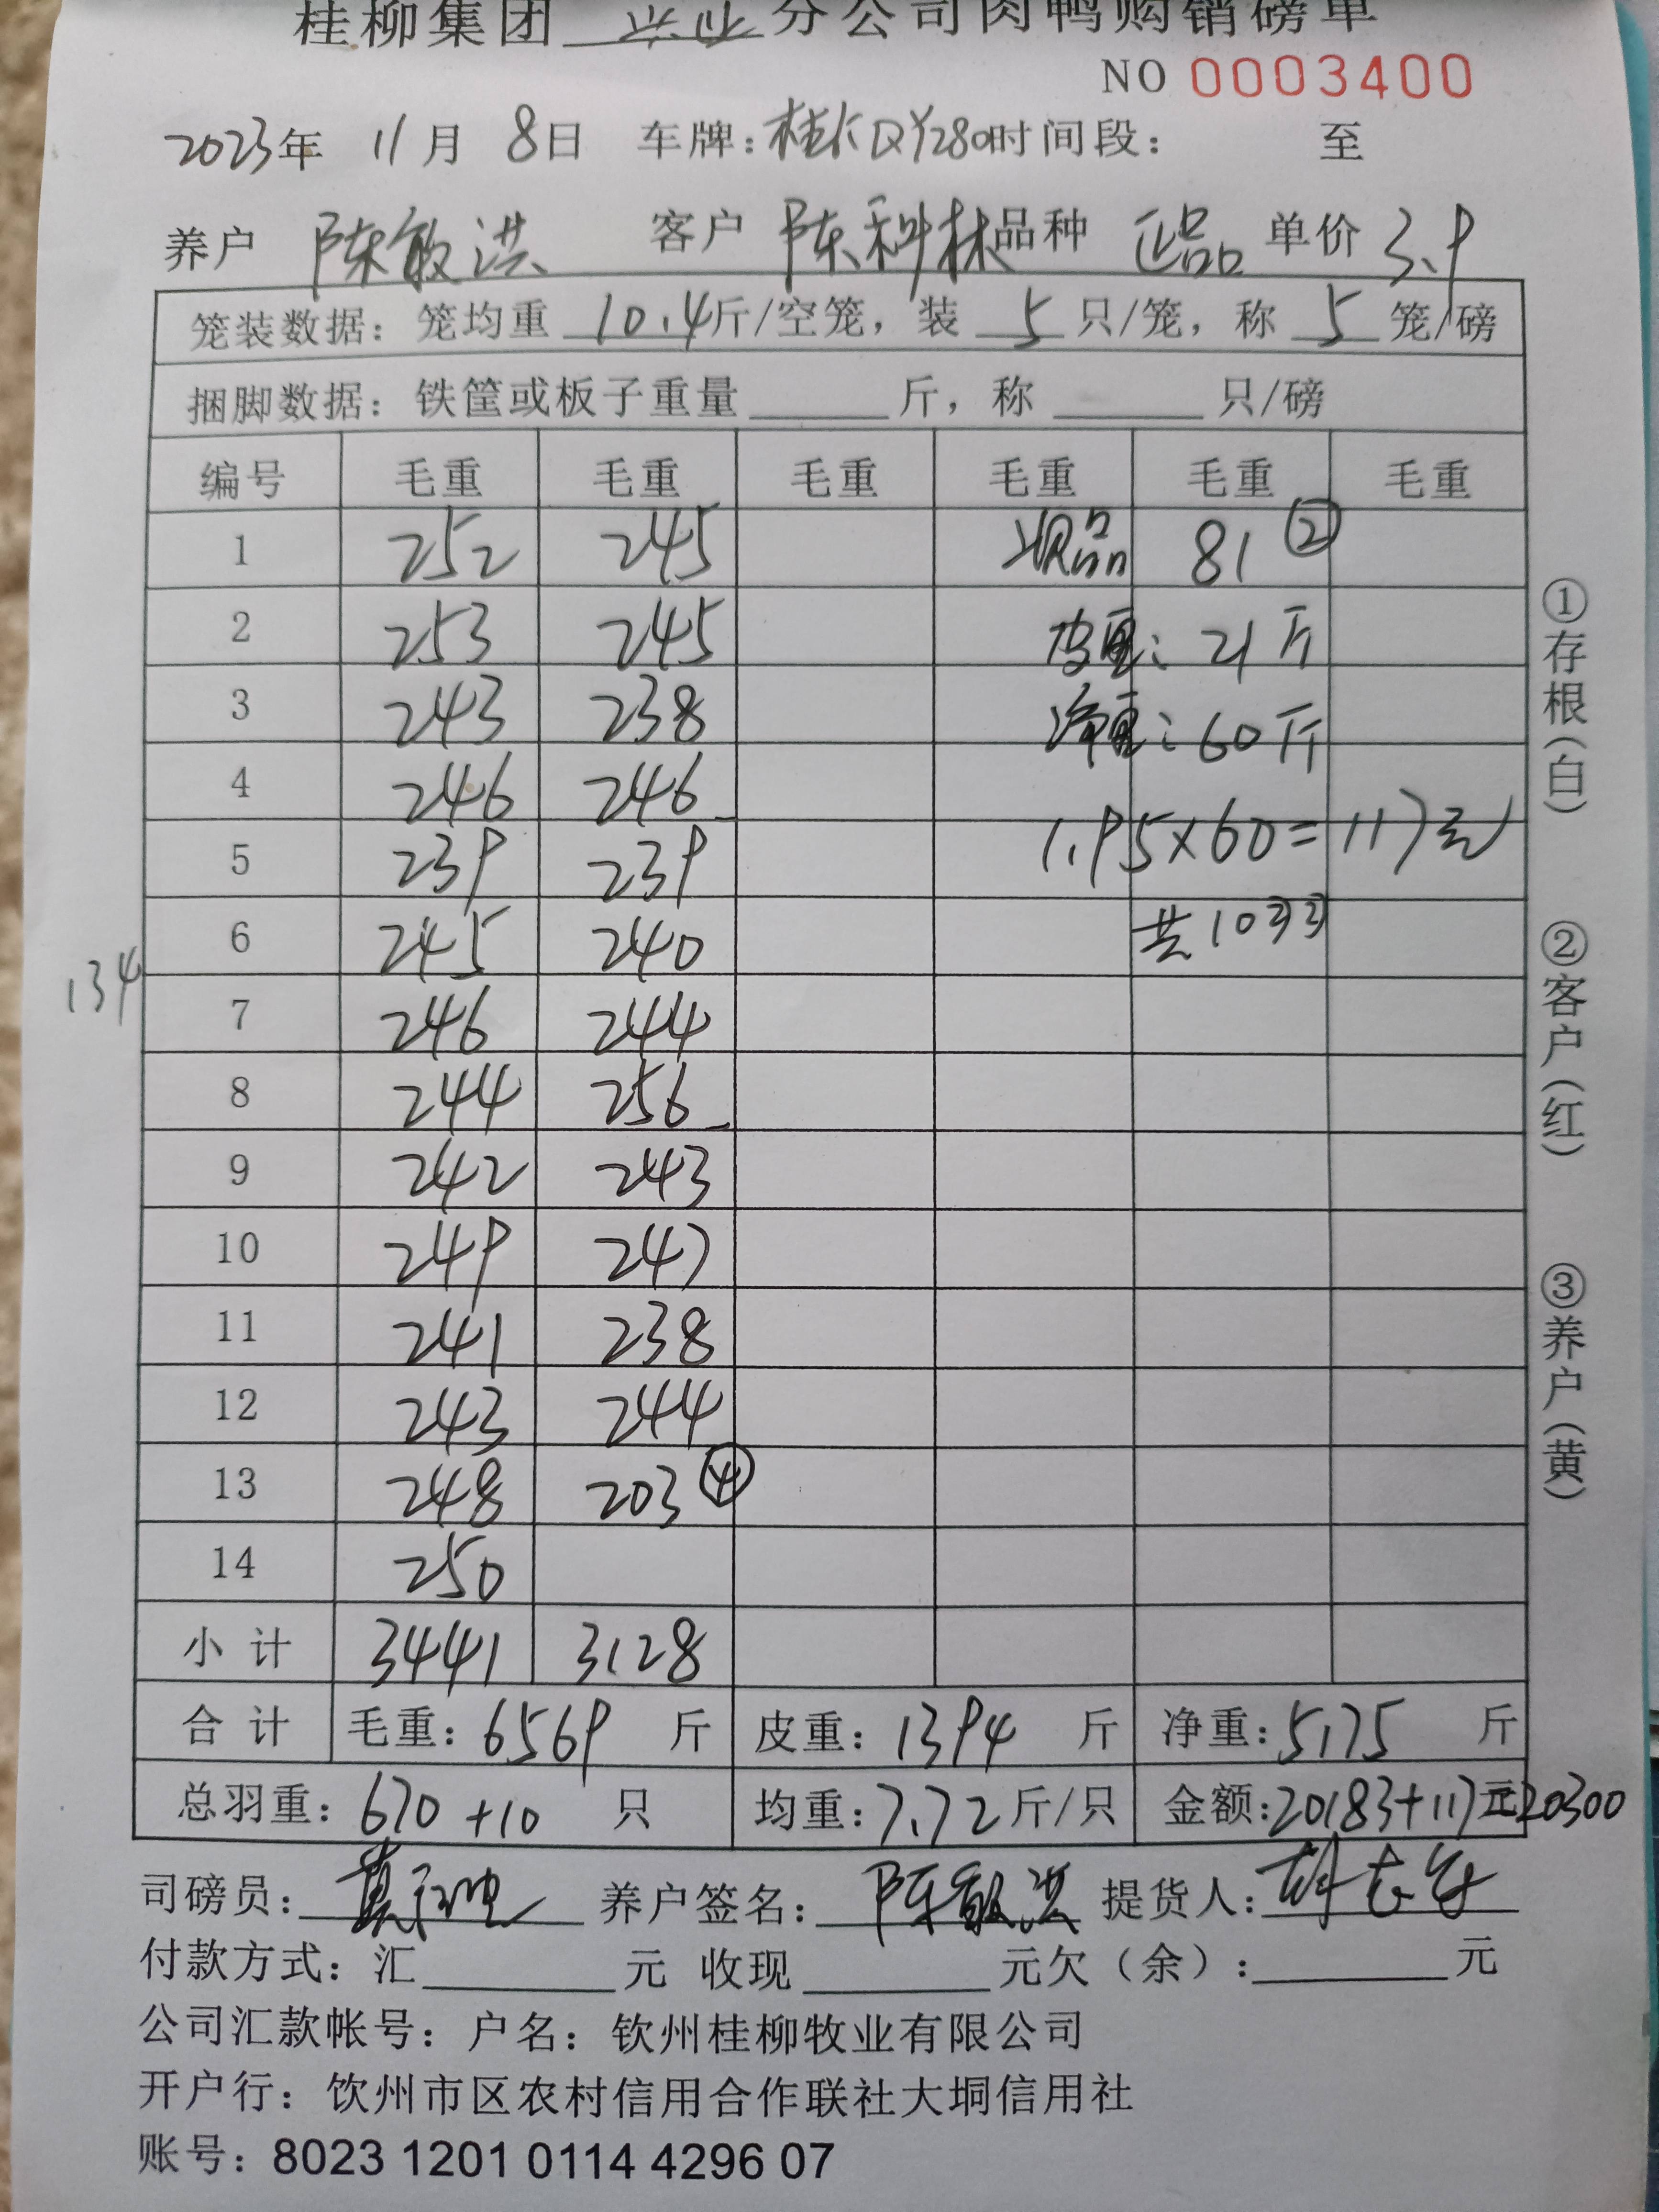 桂柳集团 兴业 分公司肉鸭购销磅单
NO 0003400
2023年 11月 8日 车牌:桂KQY280时间段: 至
养户 陈敏洪 客户 陈科林品种 正品 单价 3.9
笼装数据: 笼均重 10.4斤/空笼, 装 5 只/笼, 称 5 笼/磅
捆脚数据: 铁筐或板子重量______斤, 称______只/磅
编号 毛重 毛重 毛重 毛重 毛重 毛重
1 252 245 次品 81 ②
2 253 245 皮重: 21斤
3 243 238 净重: 60斤
4 246 246
1.95×60=117元
5 239 239
6 245 240 共10羽
134
7 246 244
8 244 256
9 242 243
10 249 247
11 241 238
12 243 244
13 248 203 ④
14 250
小计 3441 3128
合计 毛重: 6569 斤 皮重: 1394 斤 净重: 5175 斤
总羽重: 670 +10 只 均重: 7.72斤/只 金额: 20183+117元20300
司磅员: 养户签名: 陈敏洪 提货人:
付款方式: 汇______元 收现______元欠(余):______元
公司汇款帐号: 户名: 钦州桂柳牧业有限公司
开户行: 饮州市区农村信用合作联社大垌信用社
账号: 8023 1201 0114 4296 07
①存根(白)
②客户(红)
③养户(黄)